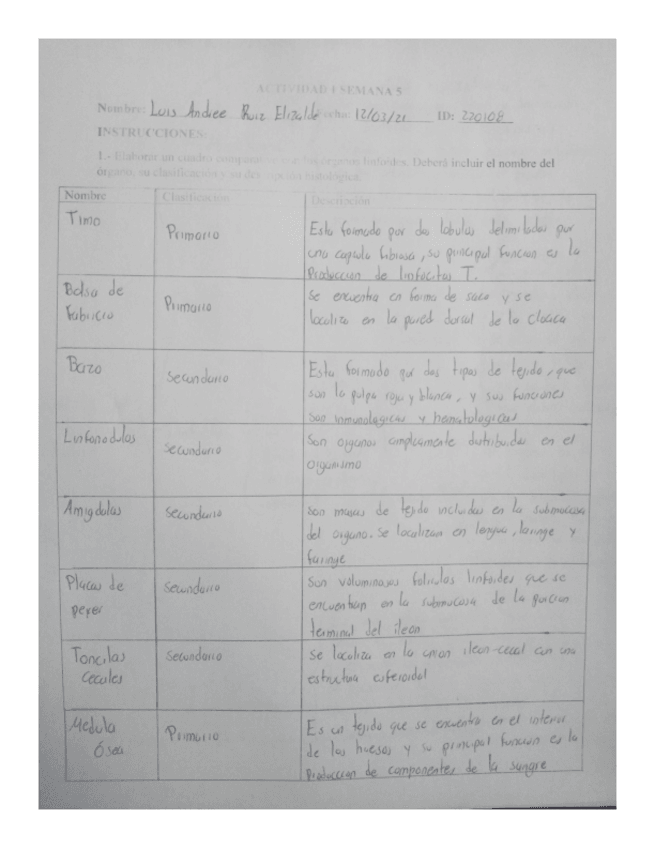 ACTIVIDAD 1 SEMANA 5
Nombre: Luis Andree Ruiz Elizalde echa: 12/03/21 ID: 220108
INSTRUCCIONES:
1.- Elaborar un cuadro órganos linfoides. Deberá incluir el nombre del
órgano, su clasificación y su descripción histológica.
Nombre Clasificación Descripción
Timo
Primario
Esta formado por dos lobulos delimitados por
una capsula fibrosa, su principal funcion es la
Produccion de linfocitos T.
Bolsa de
Fabricio
Primario
Se encuentra en forma de saco y se
localiza en la pared dorsal de la cloaca
Bazo
Secundario
Esta formado por dos tipos de tejido, que
son la pulpa roja y blanca, y sus funciones
son inmunologicas y hematologicas
Linfonodulos
Secundario
Son organos ampliamente distribuidos en el
organismo
Amigdalas
Secundario
Son masas de tejido incluidas en la submucosa
del organo. Se localizan en lengua, laringe y
faringe
Placas de
peyer
Secundario
Son voluminosos foliculos linfoides que se
encuentran en la submucosa de la porcion
terminal del ileon
Toncilas
Cecales
Secundario
Se localiza en la union ileon-cecal con una
estructura esferoidal
Medula
Ósea
Primario
Es un tejido que se encuentra en el interior
de los huesos y su principal funcion es la
Produccion de componentes de la sangre